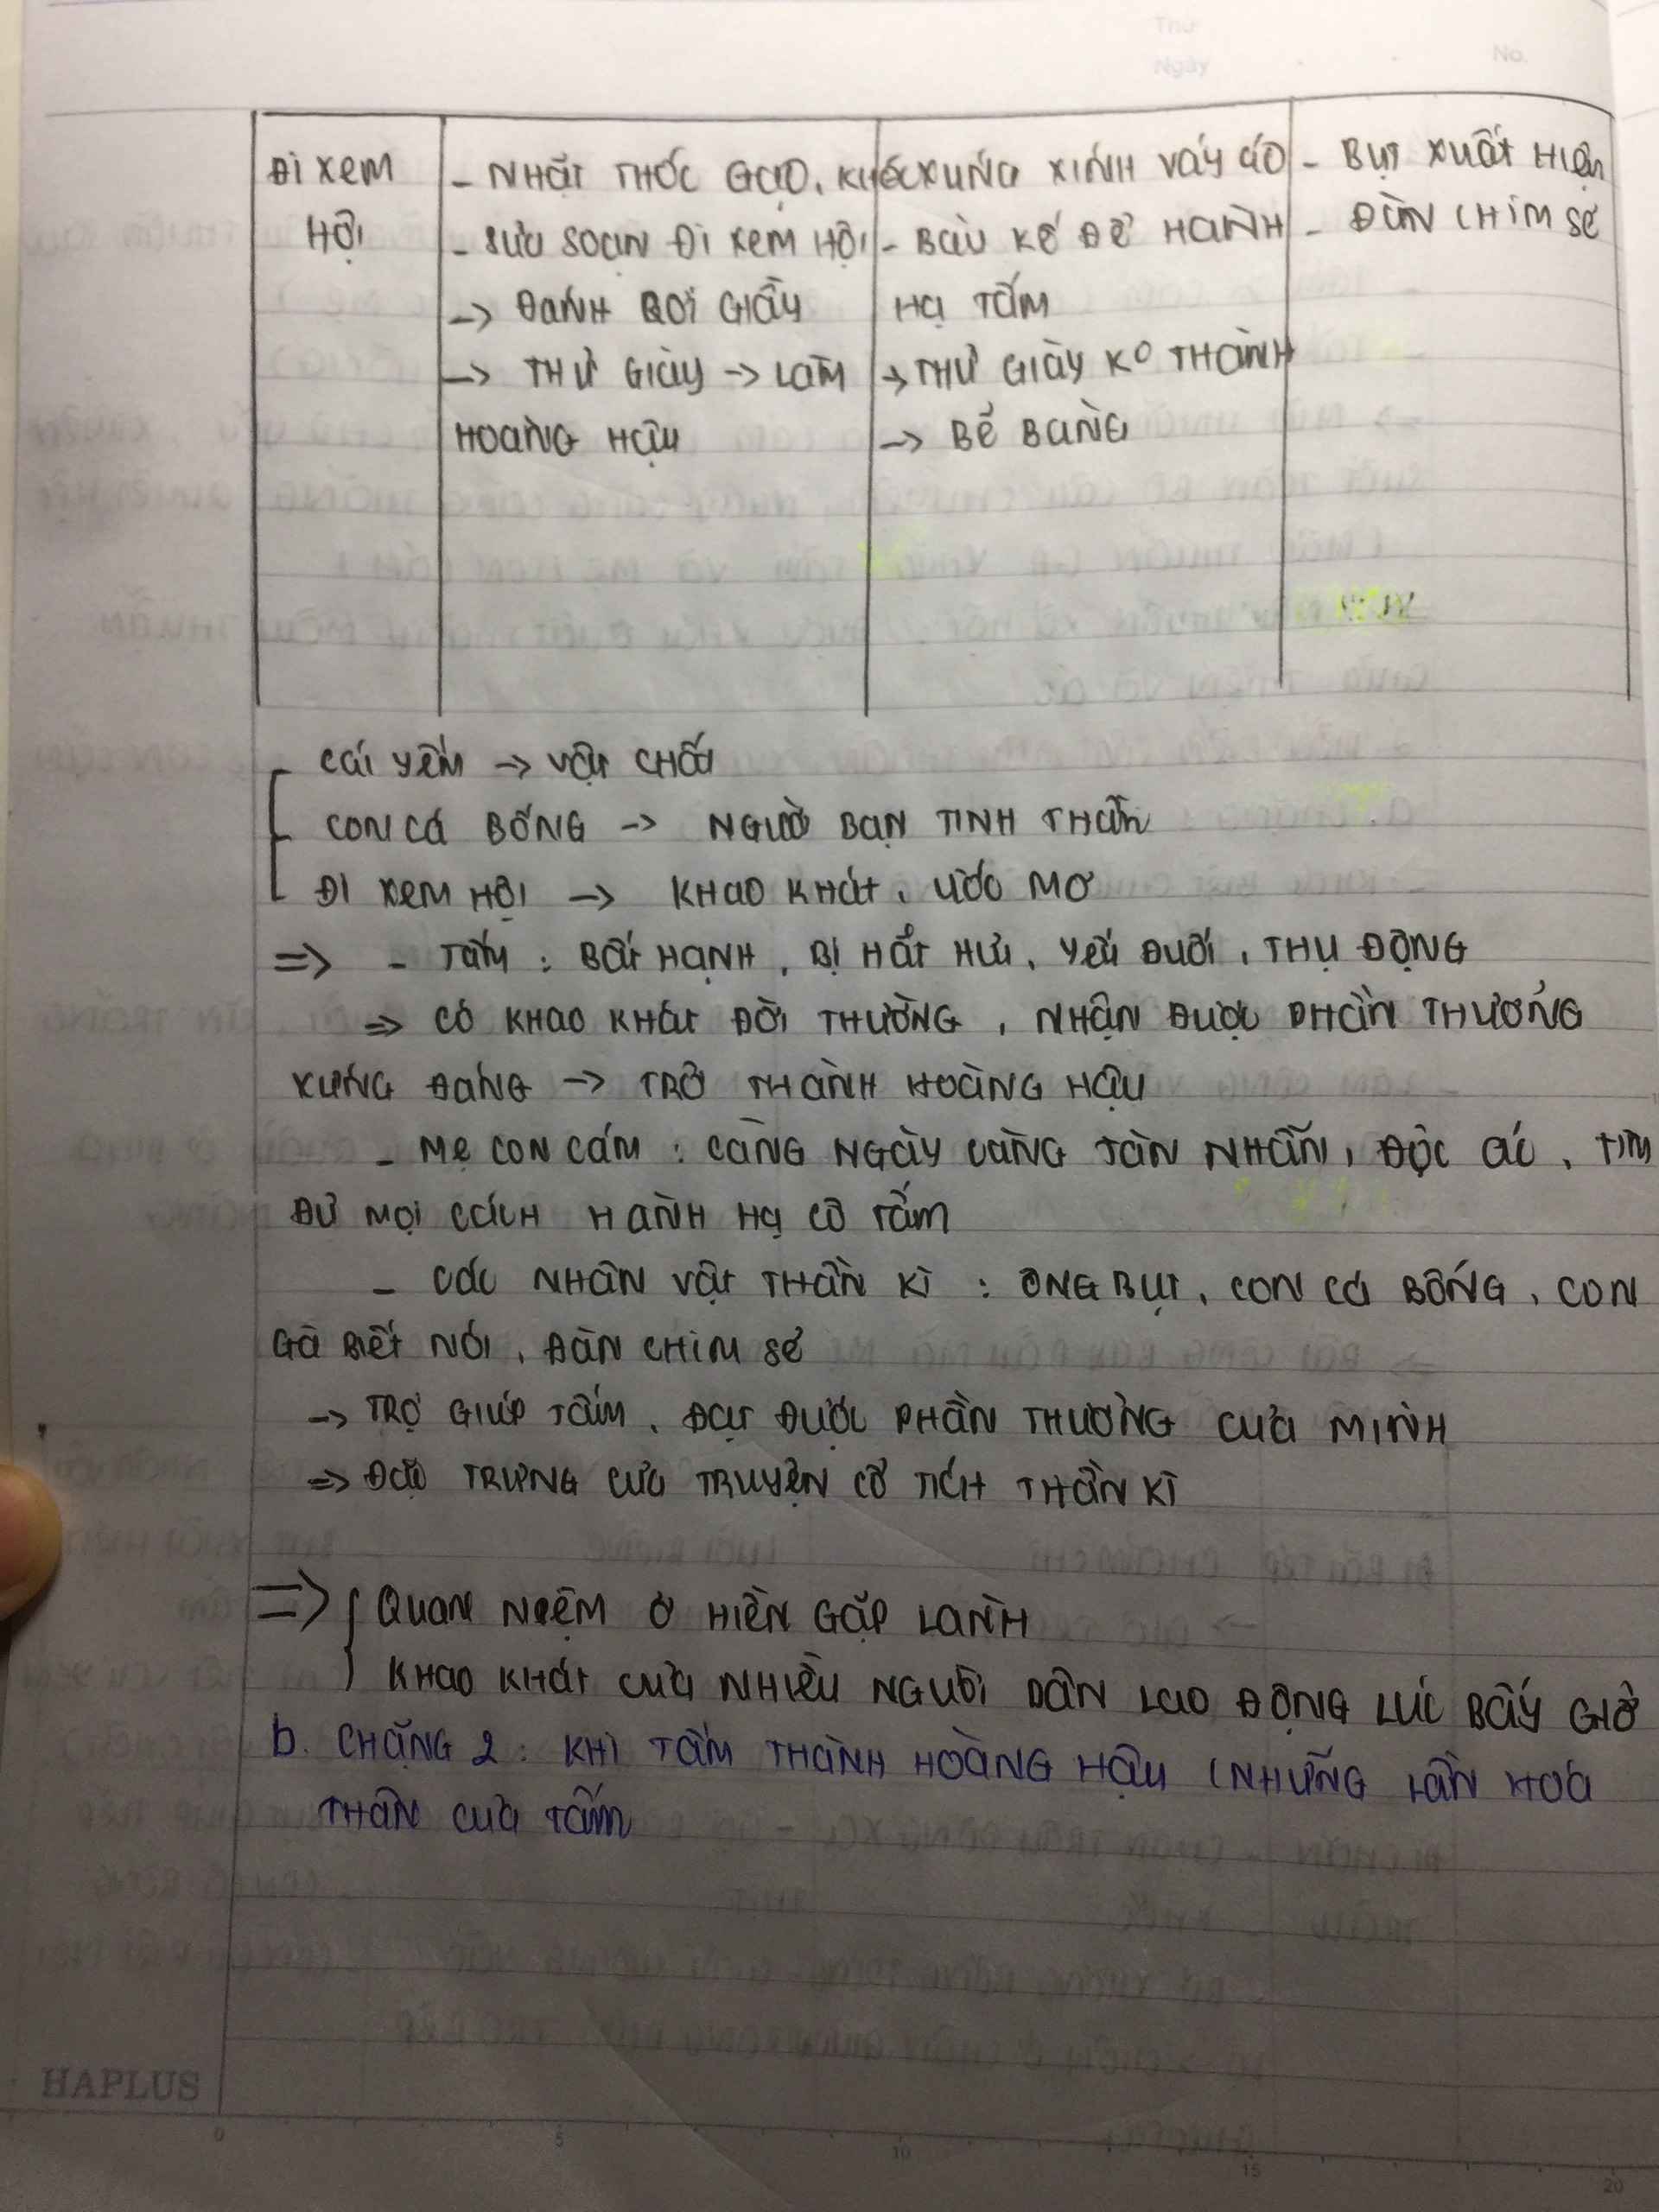 Thứ
Ngày
No.
Đi xem - Nhặt thóc gạo, khóc xúng xính váy áo - Bụt xuất hiện
Hội - Sửa soạn đi xem hội - Bày kế để hành - Đàn chim sẻ
-> Đánh rơi giầy hạ Tấm
-> Thử giày -> làm -> Thử giày ko thành
hoàng hậu -> Bẽ bàng
Cái yếm -> vật chất
Con cá bống -> người bạn tinh thần
Đi xem hội -> khao khát, ước mơ
=> - Tấm : Bất hạnh, bị hắt hủi, yếu đuối, thụ động
=> có khao khát đời thường, nhận được phần thưởng
xứng đáng -> trở thành hoàng hậu
- Mẹ con Cám : càng ngày càng tàn nhẫn, độc ác, tìm
đủ mọi cách hành hạ cô Tấm
- Các nhân vật thần kì : ông Bụt, con cá bống, con
gà biết nói, đàn chim sẻ
-> Trợ giúp Tấm, đạt được phần thưởng của mình
=> Đặc trưng của truyện cổ tích thần kì
=> Quan niệm ở hiền gặp lành
Khao khát của nhiều người dân lao động lúc bấy giờ
b. Chặng 2 : Khi Tấm thành hoàng hậu (những lần hoá
thân của Tấm
HAPLUS
0 5 10 15 20